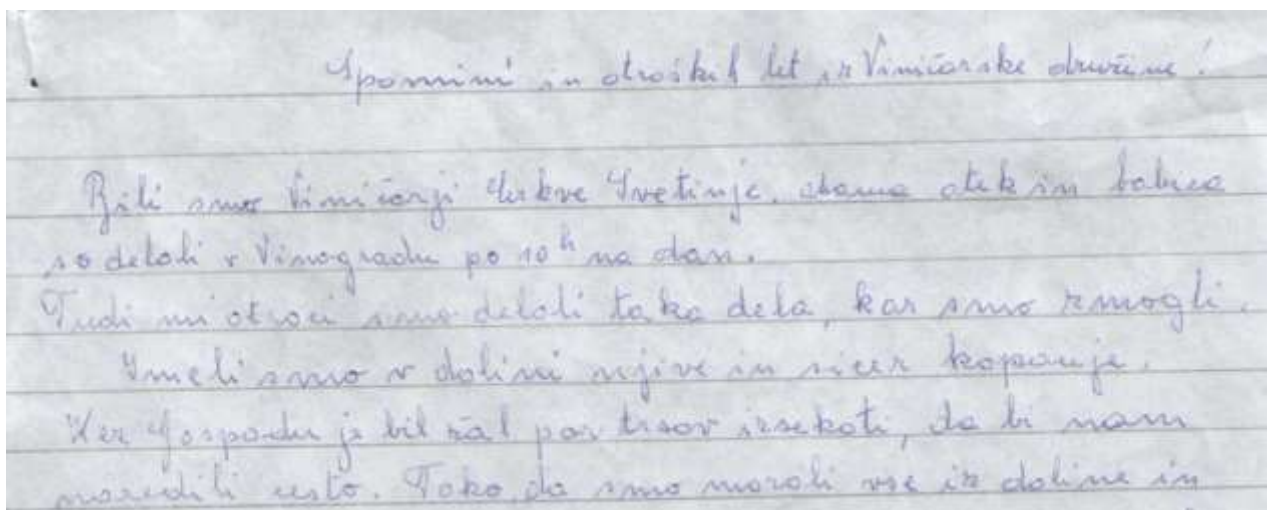 Spomini in otroških let iz Viničarske družine!
Bili smo Viničarji Cerkve Svetinje, doma atek in babica
so delali v Vinogradu po 10h na dan.
Tudi mi otroci smo delali taka dela, kar smo zmogli.
Imeli smo v dolini njive in sicer kopanje.
Ker Gospodu je bil žal par trsov izsekati, da bi nam
naredili cesto. Tako, da smo morali vse iz doline in